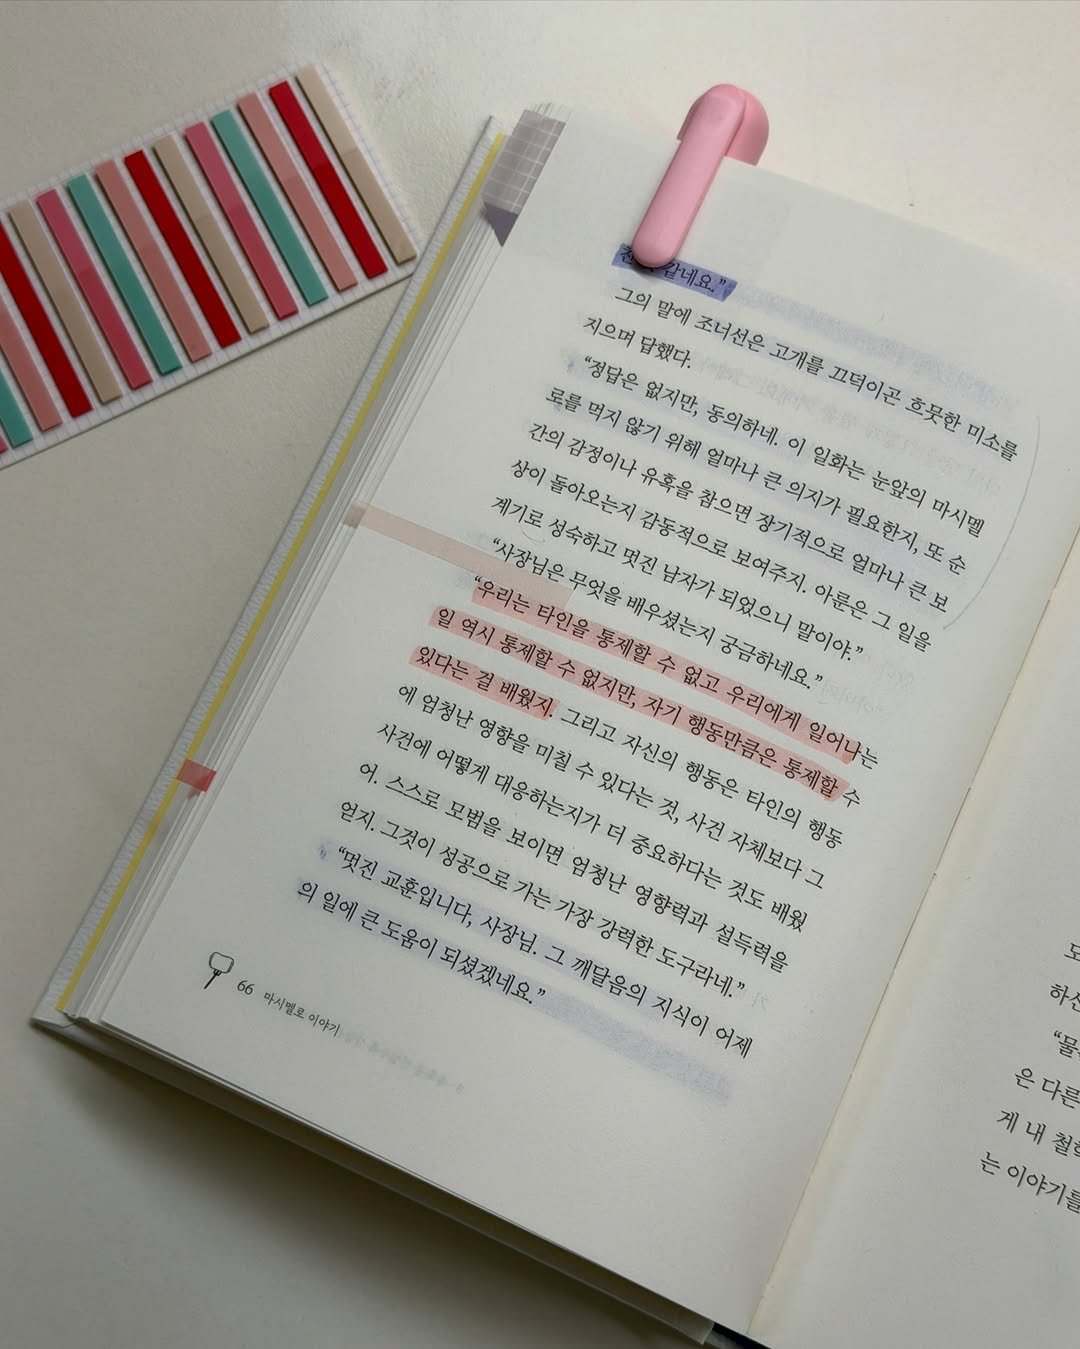 같네요.”
그의 말에 조너선은 고개를 끄덕이곤 흐뭇한 미소를
지으며 답했다.
“정답은 없지만, 동의하네. 이 일화는 눈앞의 마시멜
로를 먹지 않기 위해 얼마나 큰 의지가 필요한지, 또 순
간의 감정이나 유혹을 참으면 장기적으로 얼마나 큰 보
상이 돌아오는지 감동적으로 보여주지. 아룬은 그 일을
계기로 성숙하고 멋진 남자가 되었으니 말이야.”
“사장님은 무엇을 배우셨는지 궁금하네요.”
“우리는 타인을 통제할 수 없고 우리에게 일어나는
일 역시 통제할 수 없지만, 자기 행동만큼은 통제할 수
있다는 걸 배웠지. 그리고 자신의 행동은 타인의 행동
에 엄청난 영향을 미칠 수 있다는 것, 사건 자체보다 그
사건에 어떻게 대응하는지가 더 중요하다는 것도 배웠
어. 스스로 모범을 보이면 엄청난 영향력과 설득력을
얻지. 그것이 성공으로 가는 가장 강력한 도구라네.”
“멋진 교훈입니다, 사장님. 그 깨달음의 지식이 어제
의 일에 큰 도움이 되셨겠네요.”
66 마시멜로 이야기
하신
은 다른
게 내 철학
는 이야기를